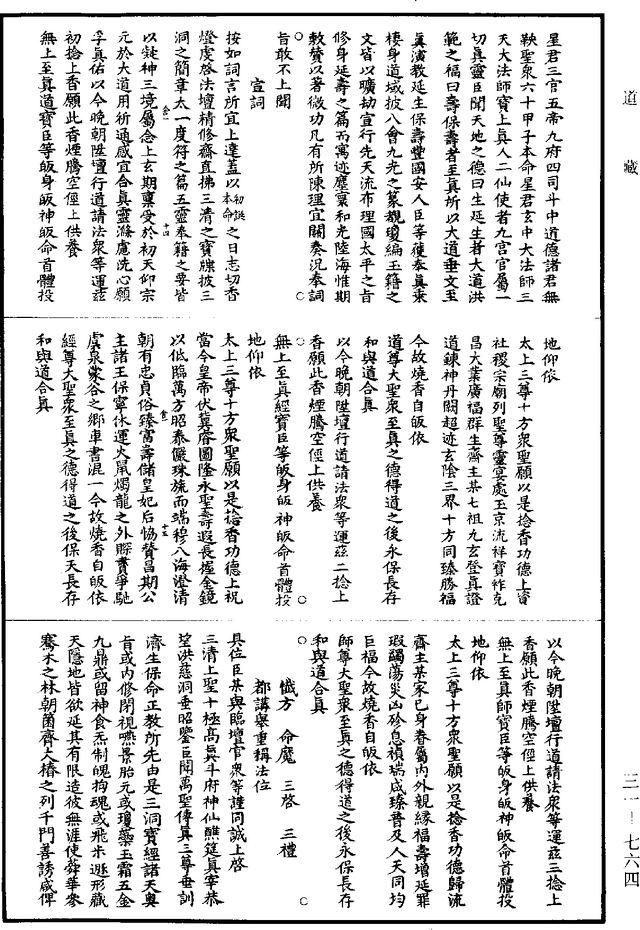 道藏
星君三官五帝九府四司斗中道德諸君無
鞅聖衆六十甲子本命星君玄中大法師三
天大法師寶上眞人二仙使者九宫官屬一
切眞靈臣聞天地之德曰生延生者大道洪
範之福曰壽保壽者至眞所以大道垂文至
眞演教延生保壽豐國安人臣等獲奉眞乘
棲身道域披八會九光之篆覩瓊編玉籍之
文皆以曠劫宣行先天流布理國太平之旨
修身延壽之篇而寓迹塵寰和光陸海惟期
敷贊以著微功凡有所陳理宜關奏況奉詞
旨敢不上聞
宣詞
按如詞言所宜上達蓋以初誕本命之日志切香
燈虔啓法壇精修齋直拂三清之寶牒披三
洞之簡章太一度符之篇五靈奉籍之要皆
以凝神三境屬念上玄期稟受於初天仰宗
元於大道用祈通感宜合眞靈滌慮洗心願
孚眞佑以今晚朝陞壇行道請法衆等運茲
初捻上香願此香煙騰空徑上供養
無上至眞道寶臣等皈身皈神皈命首體投
地仰依
太上三尊十方衆聖願以是捻香功德上資
社稷宗廟列聖尊靈宴處玉京流祥寶祚克
昌大葉廣福群生齋主某七祖九玄登眞證
道鍊神丹闕超迹玄陰三界十方同臻勝福
今故燒香自皈依
道尊大聖衆至眞之德得道之後永保長存
和與道合眞
以今晚朝陞壇行道請法衆等運茲二捻上
香願此香煙騰空徑上供養
無上至眞經寶臣等皈身皈神皈命首體投
地仰依
太上三尊十方衆聖願以是捻香功德上祝
當今皇帝伏冀睿圖隆永聖壽遐長握金鏡
以低臨萬方昭泰儼珠旒而端穆八海澄清
朝有忠貞俗臻富壽儲皇妃后恊贊昌期公
主諸王保寧休運火鼠燭龍之外賝賮爭馳
虞泉蒙谷之鄉車書混一今故燒香自皈依
經尊大聖衆至眞之德得道之後保天長存
和與道合眞
以今晚朝陞壇行道請法衆等運茲三捻上
香願此香煙騰空徑上供養
無上至眞師寶臣等皈身皈神皈命首體投
地仰依
太上三尊十方衆聖願以是捻香功德歸流
齋主某家已身眷屬内外親緣福壽增延罪
瑕蠲蕩災凶殄息禎瑞咸臻普及人天同均
巨福今故燒香自皈依
師尊大聖衆至眞之德得道之後永保長存
和與道合眞
懴方　命魔　三啓　三禮
都講舉重稱法位
具位臣某與臨壇官衆等謹同誠上啓
三清上聖十極高眞斗府神仙醮筵眞宰恭
望洪慈洞垂昭鑒臣聞萬聖傳眞三尊垂訓
濟生保命正教所先由是三洞寶經諸天奥
旨或内修閉視嚥景胎元或瓊藥玉霜五金
九鼎或留神食炁制魄拘魂或飛步遯形藏
天隱地皆欲延其有限造彼無涯使舜華參
騫木之林朝菌齊大椿之列千門善誘咸俾
三一－七六四